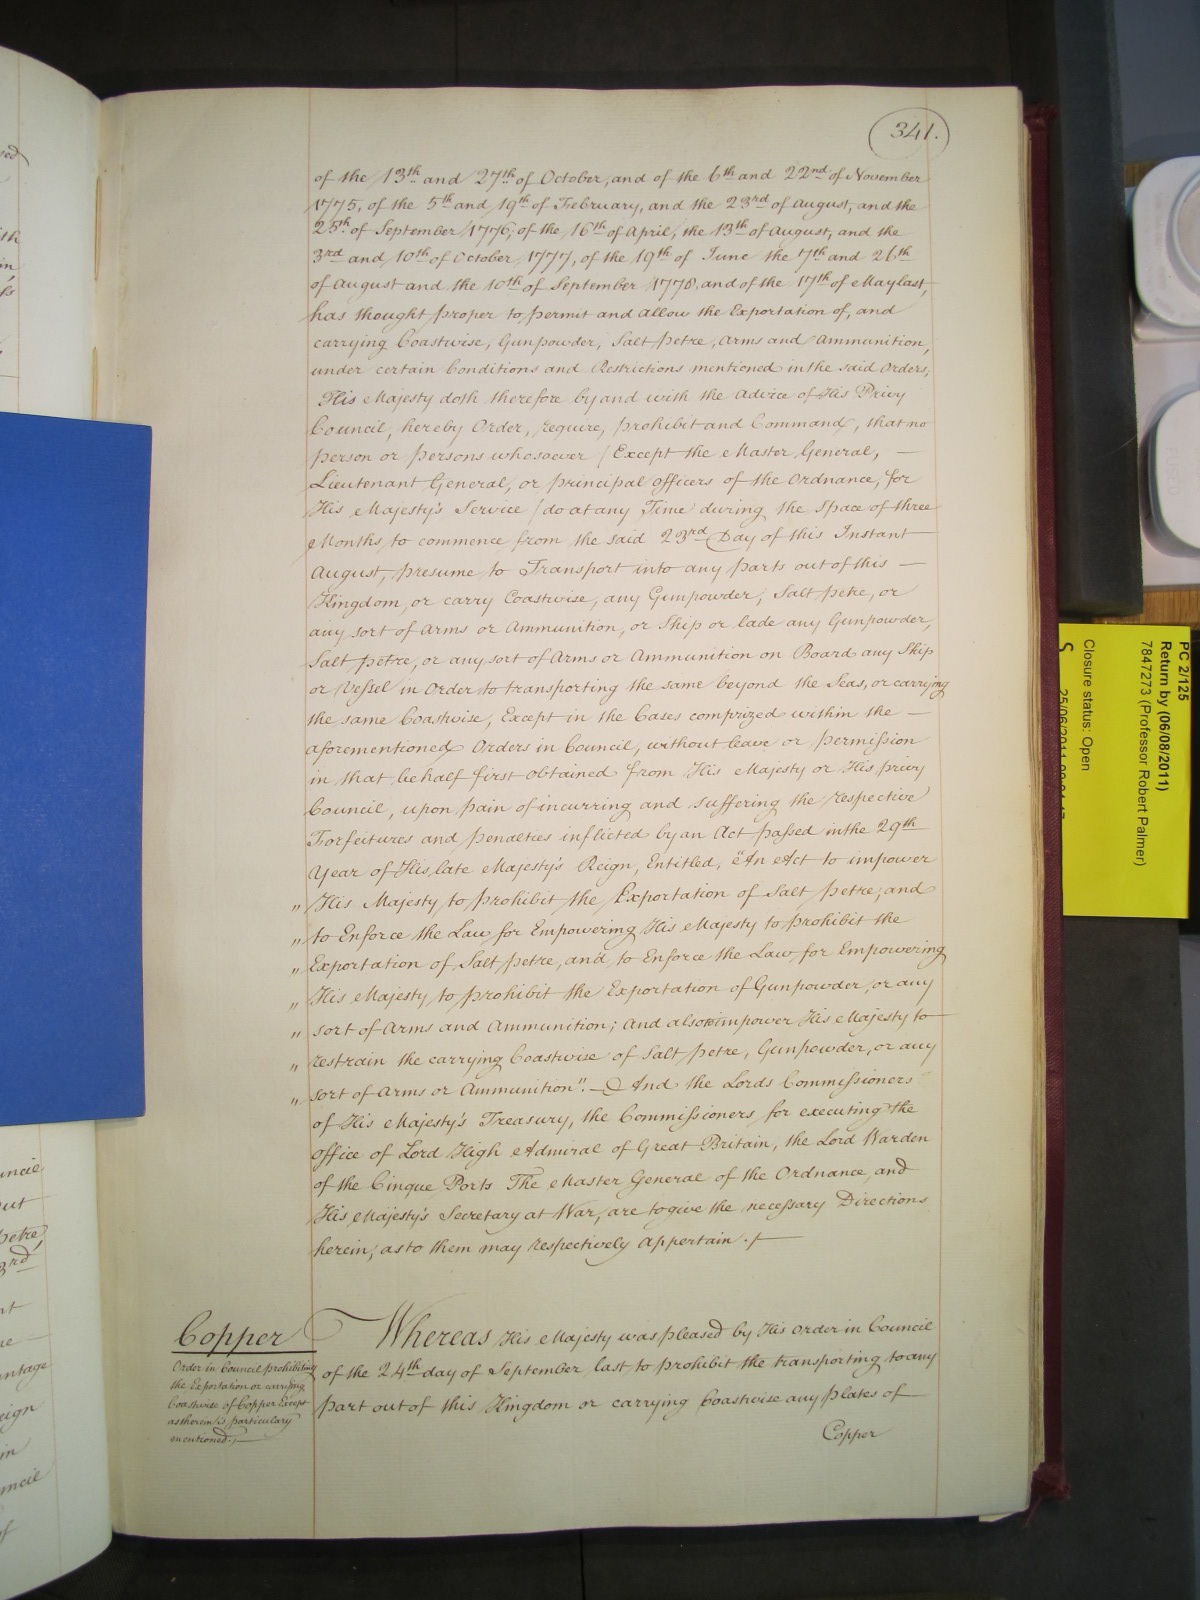 341.
of the 13th and 27th of October, and of the 6th and 22nd of November
1775, of the 5th and 19th of February, and the 23rd of August, and the
25th of September 1776, of the 16th of April, the 13th of August, and the
3rd and 10th of October 1777, of the 19th of June the 7th and 26th
of August and the 10th of September 1778, and of the 17th of May last,
has thought proper to permit and allow the Exportation of, and
carrying Coastwise, Gunpowder, Salt petre, Arms and Ammunition,
under certain Conditions and Restrictions mentioned in the said Orders,
His Majesty doth therefore by and with the Advice of His Privy
Council, hereby Order, require, prohibit and Command, that no
person or persons whosoever (Except the Master General, —
Lieutenant General, or principal officers of the Ordnance, for
His Majesty's Service) do at any Time during the Space of three
Months to commence from the said 23rd Day of this Instant
August, presume to Transport into any parts out of this —
Kingdom, or carry Coastwise, any Gunpowder, Salt petre, or
any sort of Arms or Ammunition, or Ship or lade any Gunpowder,
Salt petre, or any sort of Arms or Ammunition on Board any Ship
or Vessel in Order to transporting the same beyond the Seas, or carrying
the same Coastwise, Except in the Cases comprized within the —
aforementioned Orders in Council, without leave or permission
in that behalf first obtained from His Majesty or His privy
Council, upon pain of incurring and suffering the respective
Forfeitures and penalties inflicted by an Act passed in the 29th
Year of His late Majesty's Reign, Entitled, "An Act to impower
" His Majesty to prohibit the Exportation of Salt petre, and
" to Enforce the Law for Empowering His Majesty to prohibit the
" Exportation of Salt petre, and to Enforce the Law for Empowering
" His Majesty to prohibit the Exportation of Gunpowder, or any
" sort of Arms and Ammunition; And also to impower His Majesty to
" restrain the carrying Coastwise of Salt petre, Gunpowder, or any
" sort of Arms or Ammunition". — And the Lords Commissioners
of His Majesty's Treasury, the Commissioners for executing the
office of Lord High Admiral of Great Britain, the Lord Warden
of the Cinque Ports The Master General of the Ordnance, and
His Majesty's Secretary at War, are to give the necessary Directions
herein, as to them may respectively appertain. —
Copper
Order in Council prohibiting
the Exportation or carrying
Coastwise of Copper Except
as therein is particulary
mentioned. —
Whereas His Majesty was pleased by His Order in Council
of the 24th day of September last to prohibit the transporting to any
part out of this Kingdom or carrying Coastwise any plates of
Copper
PC 2/125
Return by (06/08/2011)
7847273 (Professor Robert Palmer)
Closure status: Open